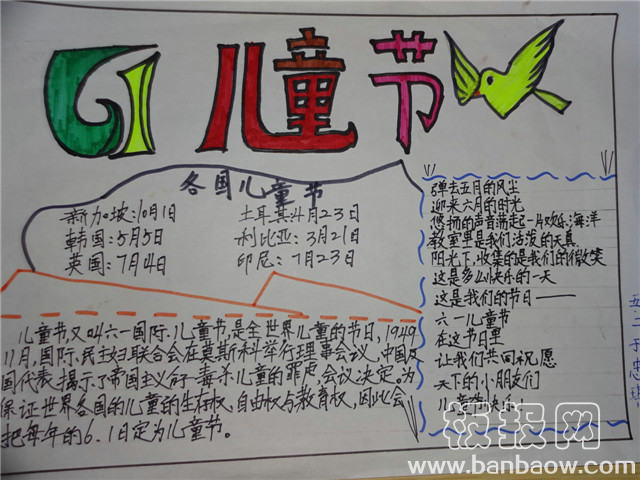 61儿童节
各国儿童节
新加坡:10月1日
土耳其:4月23日
韩国:5月5日
利比亚:3月21日
英国:7月4日
印尼:7月23日
儿童节,又叫六一国际儿童节,是全世界儿童的节日,1949
11月,国际民主妇联合会在莫斯科举行理事会议,中国及
国代表揭示了帝国主义 毒杀儿童的罪 ,会议决定。为
保证世界各国的儿童的生存权、自由权与教育权,因此会
把每年的6.1日定为儿童节。
弹去五月的风尘
迎来六月的时光
悠扬的声音荡起一片欢乐海洋
教室里是我们活泼的天真
阳光下,收集的是我们的微笑
这是多么快乐的一天
这是我们的节日——
六一儿童节
在这节日里
让我们共同祝愿
天下的小朋友们
儿童节快乐!
五二
版报网
www.banbaow.com